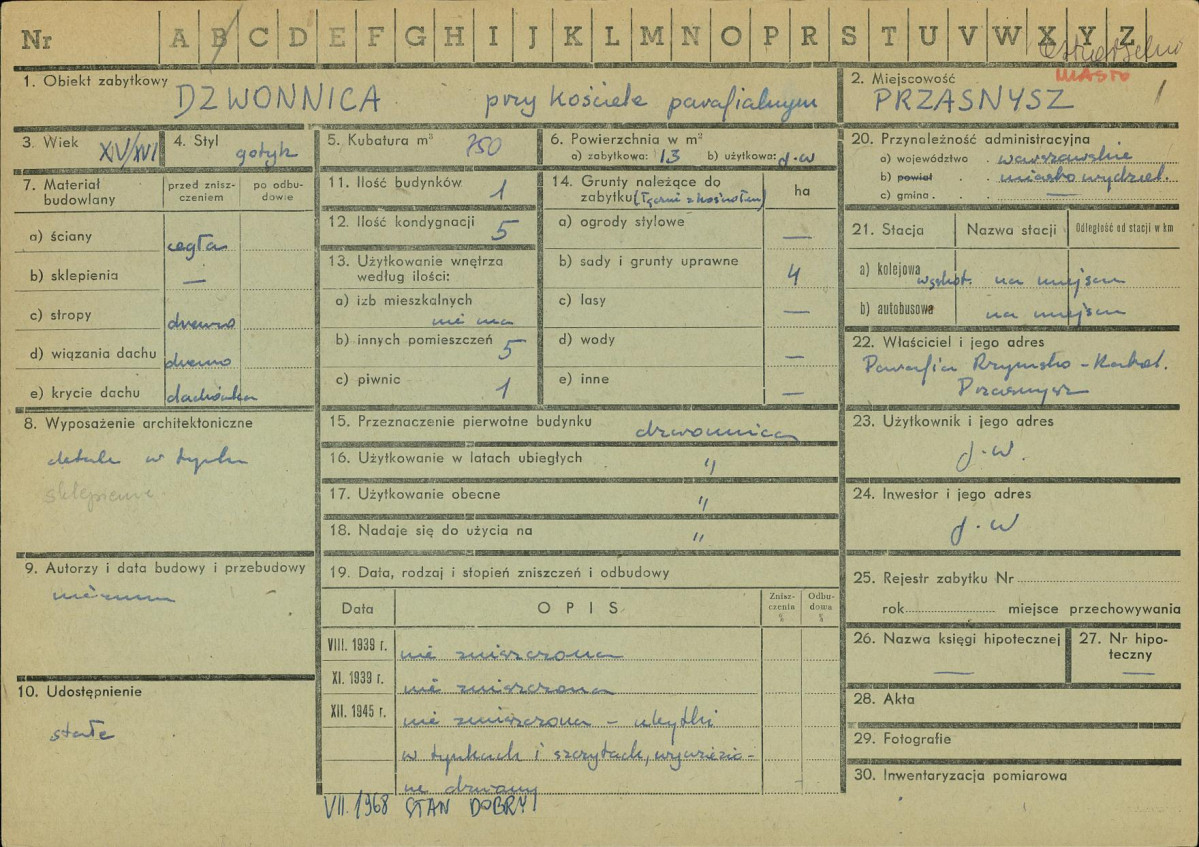 Nr A B C D E F G H I J K L M N O P R S T U V W X Y Z
MIASTO
1. Obiekt zabytkowy DZWONNICA przy kościele parafialnym
2. Miejscowość PRZASNYSZ
3. Wiek XIV/XVI
4. Styl gotyk
5. Kubatura m³ 750
6. Powierzchnia w m²
a) zabytkowa: 13 b) użytkowa: j.w
7. Materiał budowlany
przed zniszczeniem
po odbudowie
a) ściany cegła
b) sklepienia —
c) stropy drewno
d) wiązania dachu drewno
e) krycie dachu dachówka
8. Wyposażenie architektoniczne
detale w tynku
sklepienie
9. Autorzy i data budowy i przebudowy
nieznani
10. Udostępnienie
stałe
11. Ilość budynków 1
12. Ilość kondygnacji 5
13. Użytkowanie wnętrza
według ilości:
a) izb mieszkalnych
nie ma
b) innych pomieszczeń 5
c) piwnic 1
14. Grunty należące do
zabytku (Łącznie z kościołem) ha
a) ogrody stylowe —
b) sady i grunty uprawne 4
c) lasy —
d) wody —
e) inne —
15. Przeznaczenie pierwotne budynku dzwonnica
16. Użytkowanie w latach ubiegłych "
17. Użytkowanie obecne "
18. Nadaje się do użycia na "
19. Data, rodzaj i stopień zniszczeń i odbudowy
Data OPIS Zniszczenia % Odbudowa %
VIII. 1939 r. nie zniszczona
XI. 1939 r. nie zniszczona
XII. 1945 r. nie zniszczona – ubytki
w tynkach i szczytach, wywiezio-
ne dzwony
VII. 1968 STAN DOBRY
20. Przynależność administracyjna
a) województwo warszawskie
b) powiat miasto wydziel.
c) gmina —
21. Stacja Nazwa stacji Odległość od stacji w km
a) kolejowa wąskot. na miejscu
b) autobusowa na miejscu
22. Właściciel i jego adres
Parafia Rzymsko-Katol.
Przasnysz
23. Użytkownik i jego adres
j.w.
24. Inwestor i jego adres
j.w
25. Rejestr zabytku Nr
rok miejsce przechowywania
26. Nazwa księgi hipotecznej
—
27. Nr hipo-
teczny
—
28. Akta
29. Fotografie
30. Inwentaryzacja pomiarowa